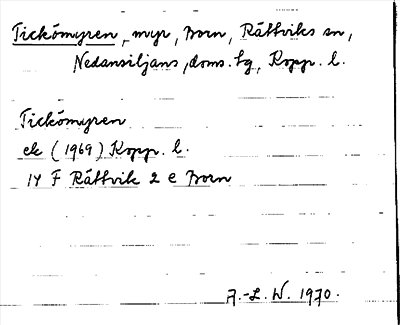 Tickömyren, myr, Born, Rättviks sn,
Nedansiljans, doms. tg, Kopp. l.
Tickömyren
ek (1969) Kopp. l.
14 F Rättvik 2 e Born
A.-L. W. 1970.